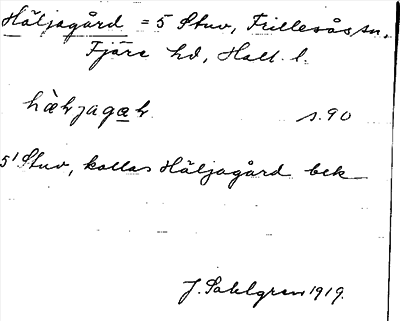 Häljagård = 5 Stuv, Frillesås sn.
Fjäre hd, Hall. l.
hàljagaḷ s. 90
5 Stuv, kallas Häljagård bek
J. Sahlgren 1919.